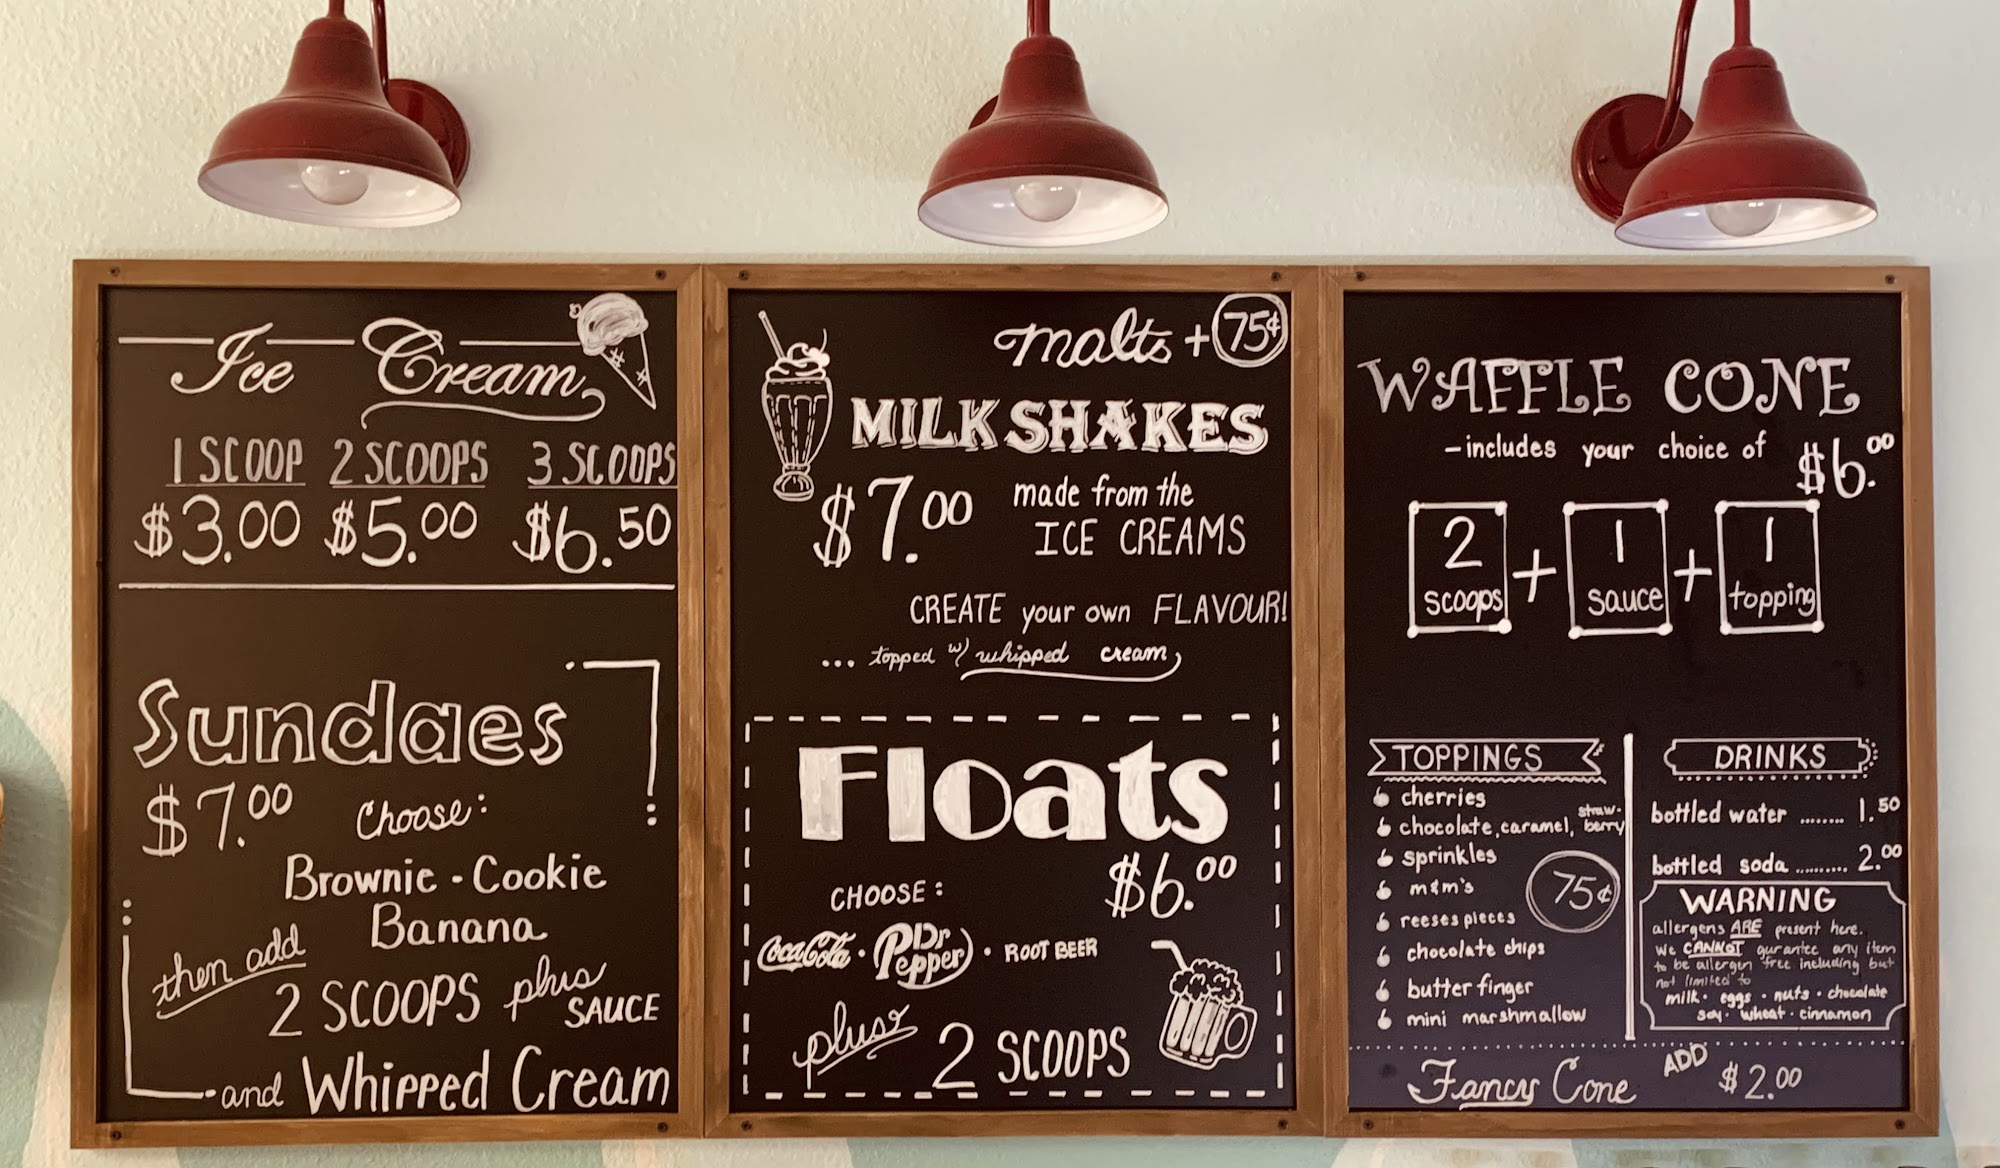 Ice Cream
1 SCOOP 2 SCOOPS 3 SCOOPS
$3.00 $5.00 $6.50
Sundaes
$7.00 Choose:
Brownie - Cookie
Banana
then add
2 SCOOPS plus
SAUCE
and Whipped Cream
malts + 75¢
MILKSHAKES
$7.00 made from the
ICE CREAMS
CREATE your own FLAVOUR!
... topped w/ whipped cream
Floats
$6.00
CHOOSE:
Coca Cola · Dr Pepper · ROOT BEER
plus
2 SCOOPS
WAFFLE CONE
- includes your choice of $6.00
2 scoops + 1 sauce + 1 topping
TOPPINGS
cherries
chocolate, caramel, straw-berry
sprinkles
m&m's
reeses pieces
chocolate chips
butter finger
mini marshmallow
75¢
DRINKS
bottled water ........ 1.50
bottled soda ......... 2.00
WARNING
allergens ARE present here.
We CANNOT gurantee any item
to be allergen free including but
not limited to
milk · eggs · nuts · chocolate
soy · wheat · cinnamon
Fancy Cone ADD $2.00